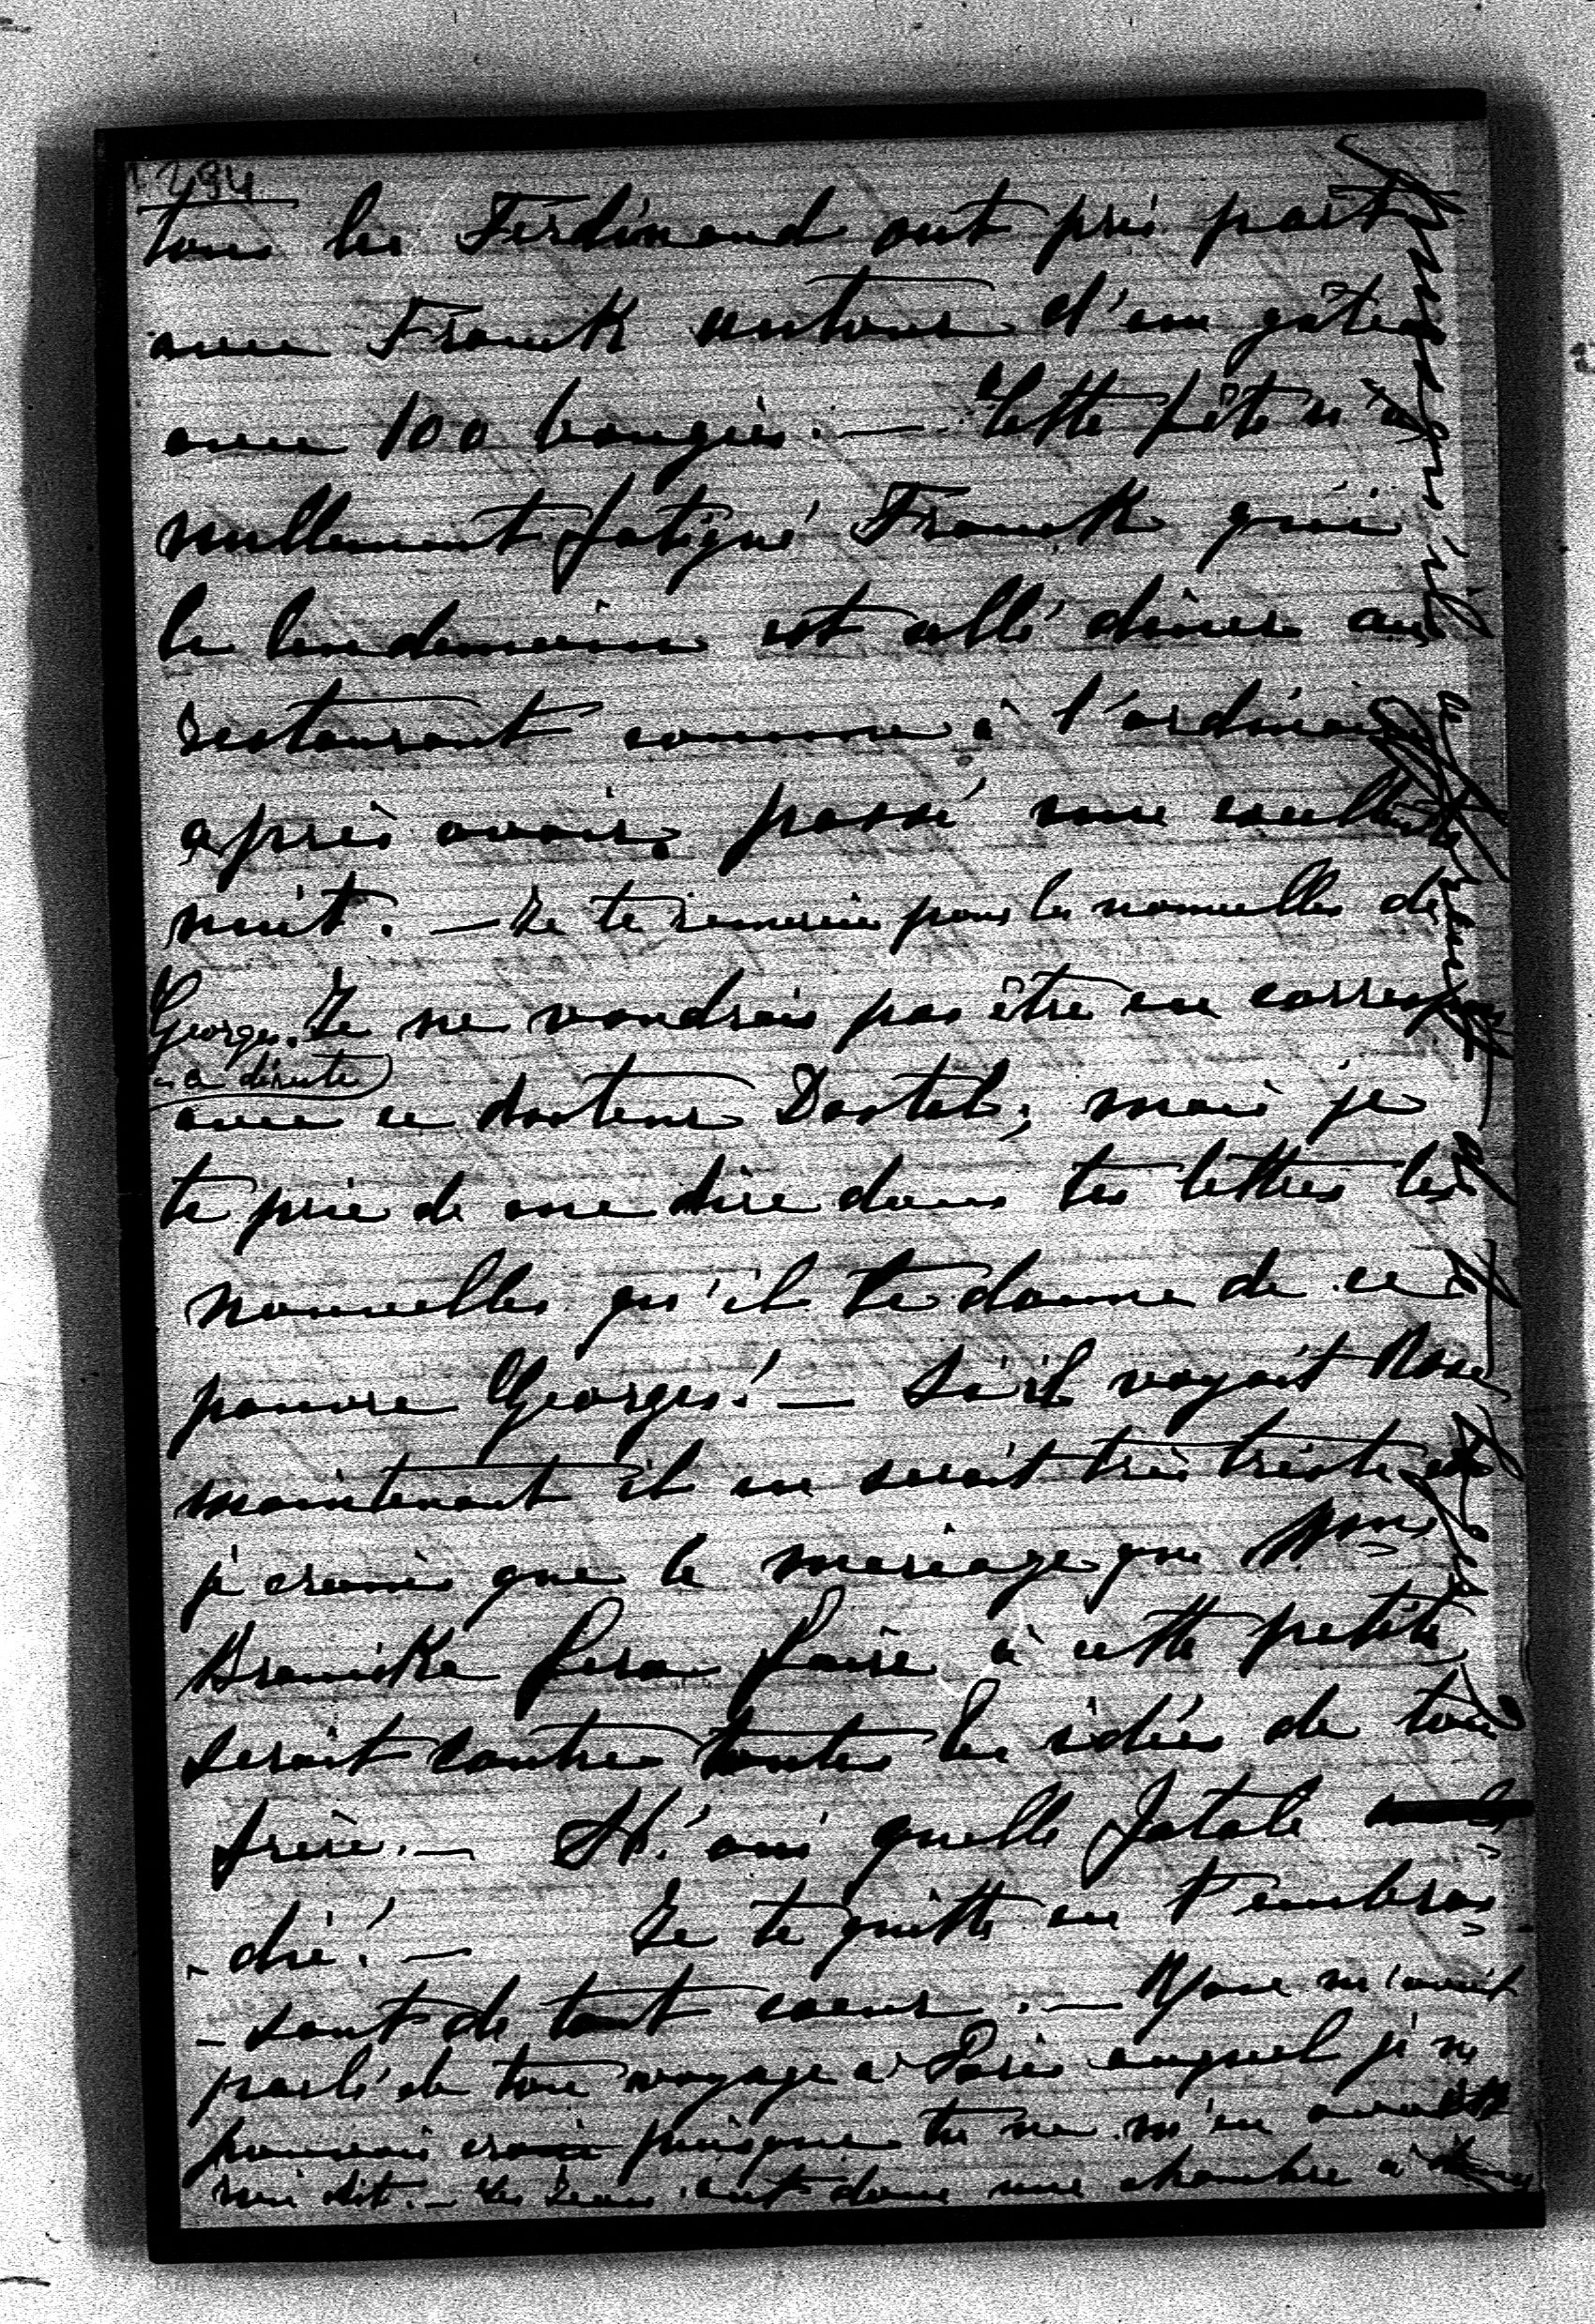 494
tous les Ferdinand ont pris part
avec Franck autour d'un gâteau
avec 100 bougies. — Cette fête n'a
nullement fatigué Franck qui
le lendemain est allé dîner au
restaurant comme à l'ordinaire
après avoir passé une excellente
nuit. — Je te remercie pour les nouvelles de
Georges. Je ne voudrais pas être en corresp
ce directe
avec ce docteur Dostal; mais je
te prie de me dire dans tes lettres les
nouvelles qu'il te donne de ce
pauvre Georges! — S'il voyait Rose
maintenant il en serait très triste et
je crains que le mariage que Mme
Branicka fera faire à cette petite
serait contre toutes les idées de ton
frère. — Ah! oui quelle fatale
-die! — Je te quitte en t'embras
-sant de tout coeur. — Rose m'avait
parlé de ton voyage à Paris auquel je ne
pouvais croire puisque tu ne m'en avais
rien dit. — Les ont donc une chambre à